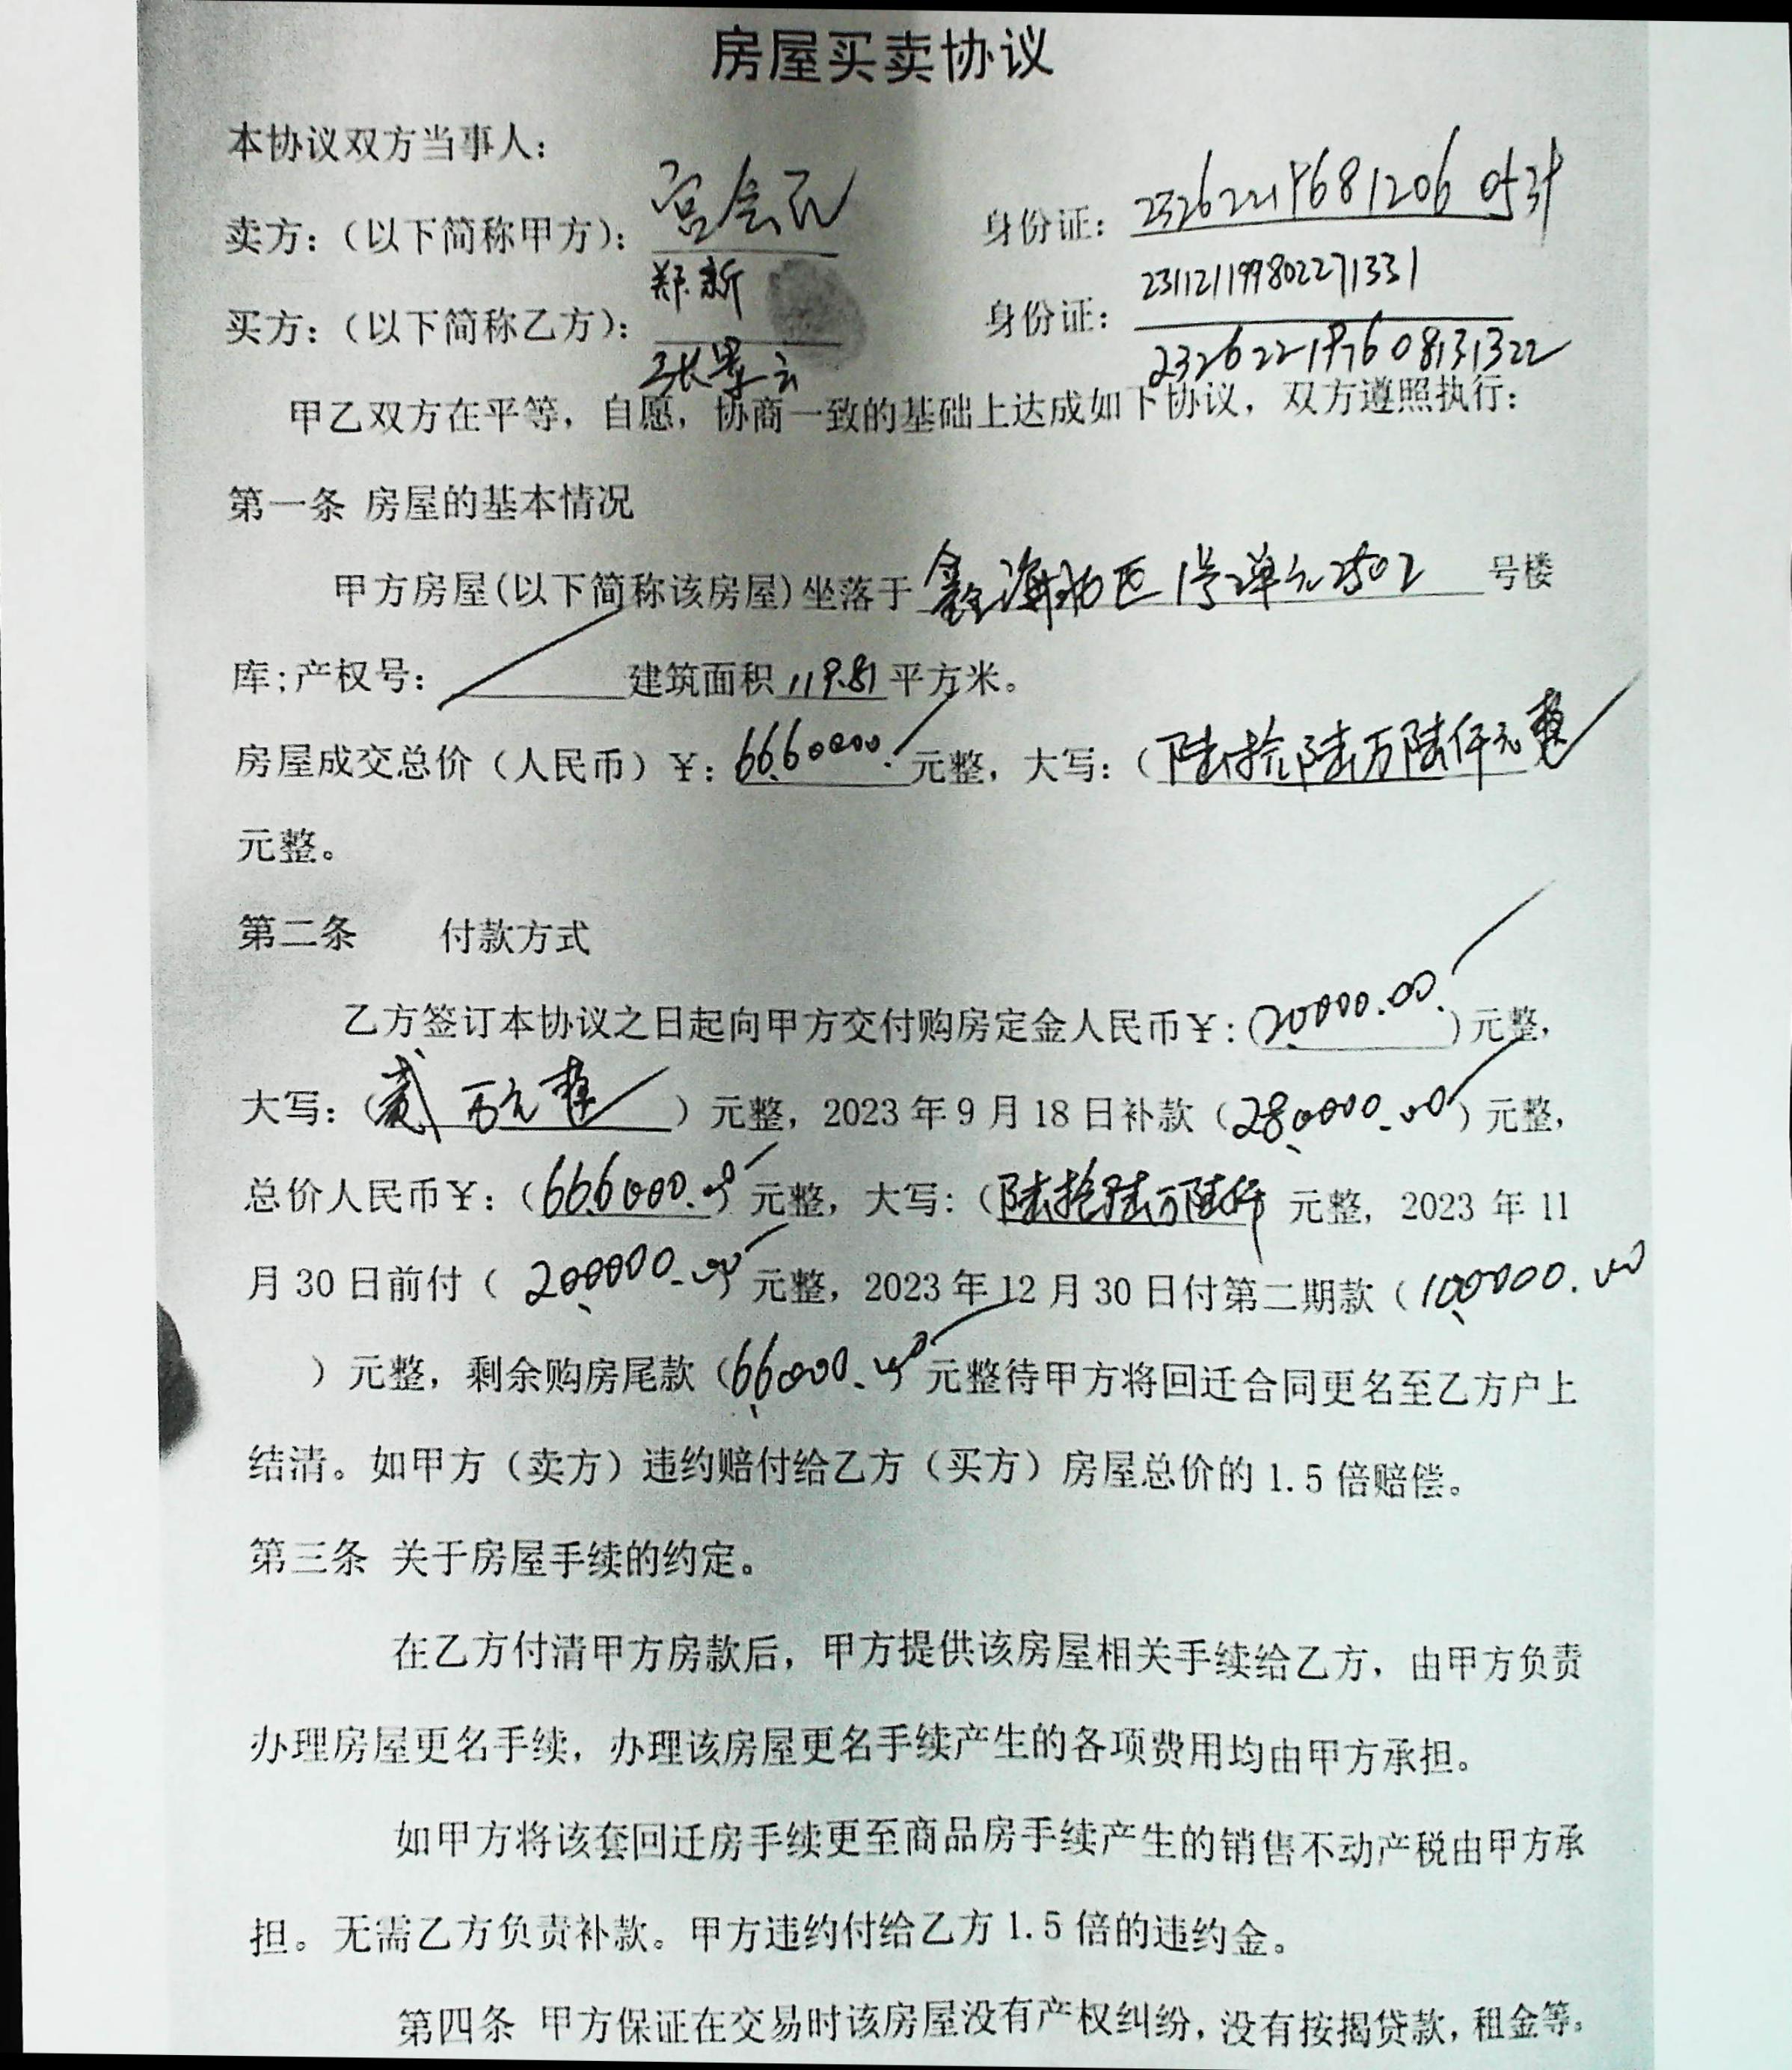 房屋买卖协议
本协议双方当事人：
卖方：（以下简称甲方）：宫会 身份证：
郑新 231121199802271331
买方：（以下简称乙方）： 身份证：
张景云 232622197608131322
甲乙双方在平等，自愿，协商一致的基础上达成如下协议，双方遵照执行：
第一条 房屋的基本情况
甲方房屋(以下简称该房屋)坐落于鑫海 区1号2单元2502号楼
库;产权号： 建筑面积119.81平方米。
房屋成交总价（人民币）￥：6660000.元整，大写：（陆拾陆万陆仟元整
元整。
第二条 付款方式
乙方签订本协议之日起向甲方交付购房定金人民币￥：(20000.00.)元整，
大写：（贰万元整）元整，2023年9月18日补款（280000.00）元整，
总价人民币￥：（666000.00）元整，大写：（陆拾陆万陆仟 元整，2023年11
月30日前付（200000.00）元整，2023年12月30日付第二期款（100000.00
）元整，剩余购房尾款（66000.00元整待甲方将回迁合同更名至乙方户上
结清。如甲方（卖方）违约赔付给乙方（买方）房屋总价的1.5倍赔偿。
第三条 关于房屋手续的约定。
在乙方付清甲方房款后，甲方提供该房屋相关手续给乙方，由甲方负责
办理房屋更名手续，办理该房屋更名手续产生的各项费用均由甲方承担。
如甲方将该套回迁房手续更至商品房手续产生的销售不动产税由甲方承
担。无需乙方负责补款。甲方违约付给乙方1.5倍的违约金。
第四条 甲方保证在交易时该房屋没有产权纠纷，没有按揭贷款，租金等。